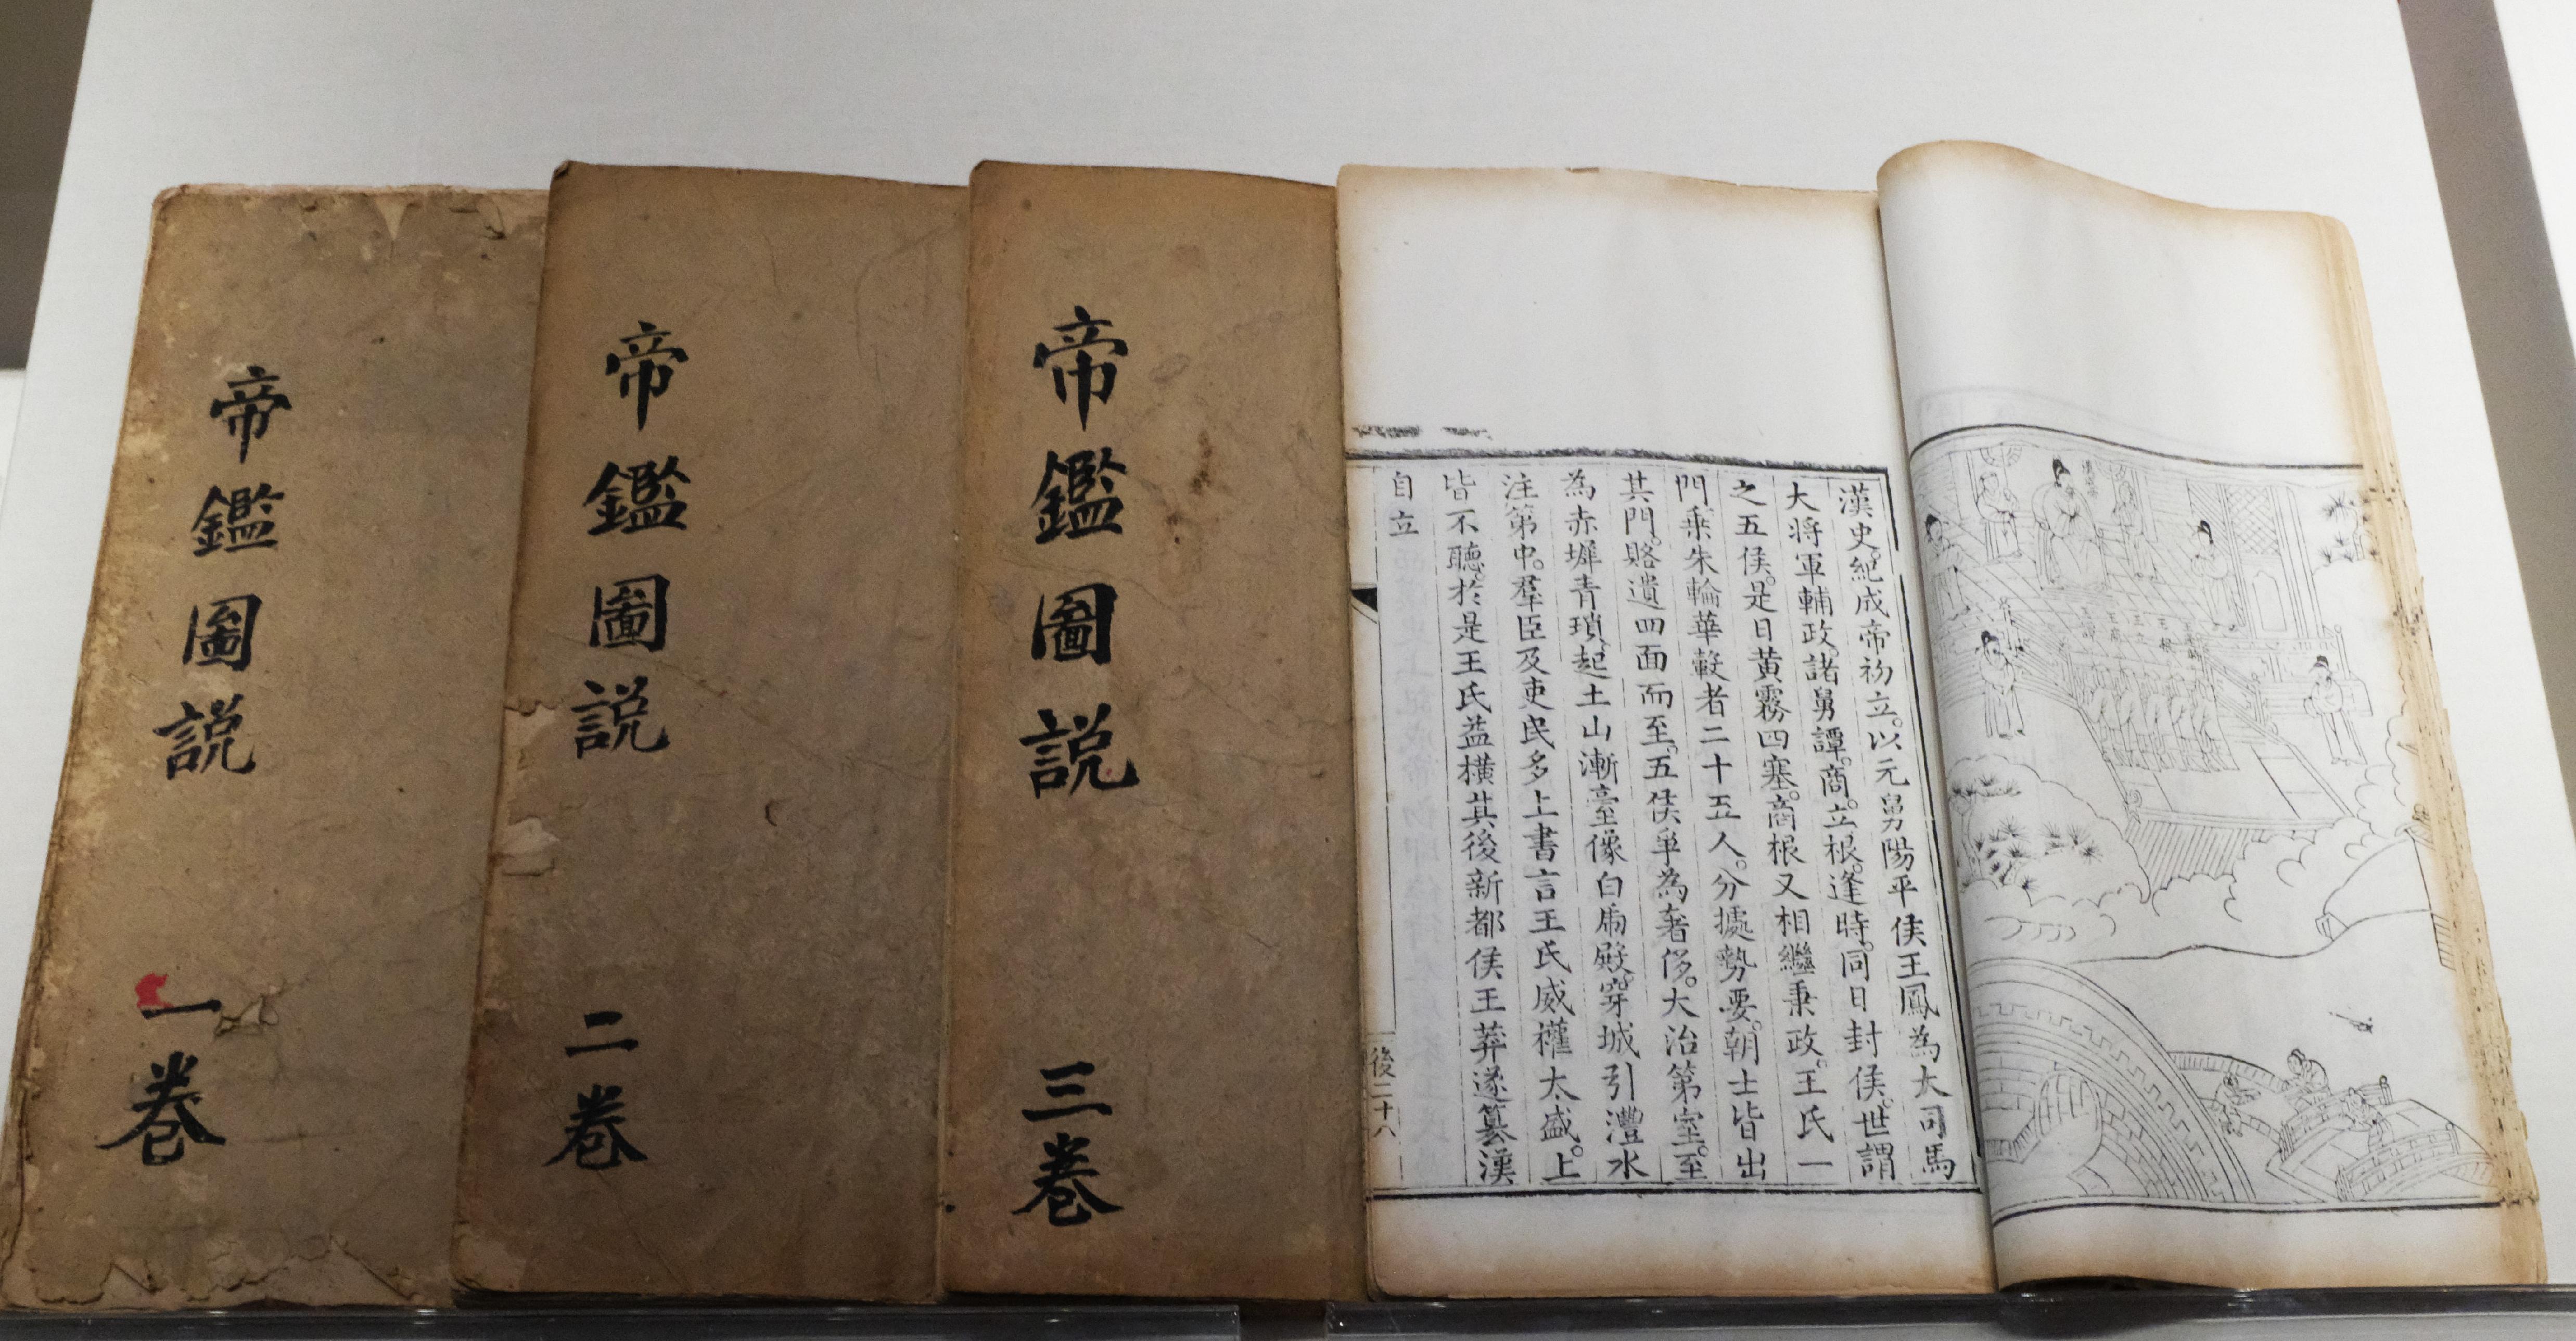 帝鑑圖説
一卷
帝鑑圖説
二卷
帝鑑圖説
三卷
漢史。紀成帝初立。以元舅陽平侯王鳳為大司馬
大將軍輔政。諸舅譚。商。立。根。逢時。同日封侯。世謂
之五侯。是日黃霧四塞。商根又相繼秉政。王氏一
門乗朱輪華轂者二十五人。分據勢要。朝士皆出
其門。賂遺四面而至。五侯爭為奢侈。大治第室。至
為赤墀青瑣。起土山漸臺。像白虎殿。穿城引灃水
注第中。羣臣及吏民多上書言王氏威權太盛。上
皆不聽。於是王氏益橫其後新都侯王莽遂篡漢
自立
後二十八